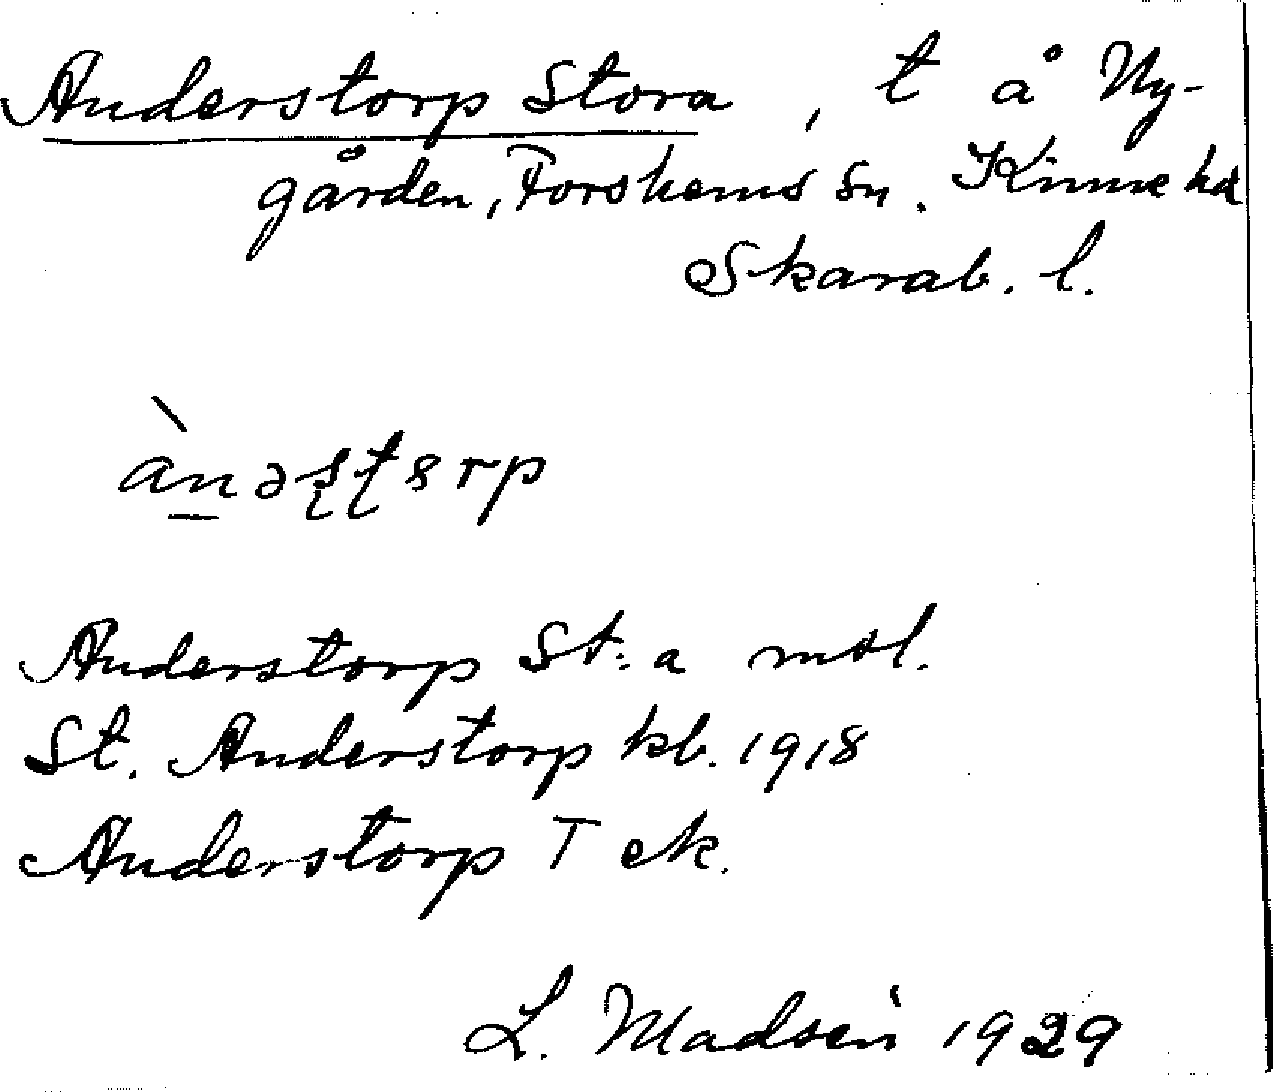 Anderstorp Stora, t å Ny-
gården, Forshems sn. Kinne hd
Skarab. l.
ànəʂʈɞrp
Anderstorp St:a mtl.
St. Anderstorp kb. 1918
Anderstorp T ek.
L. Madsén 1929